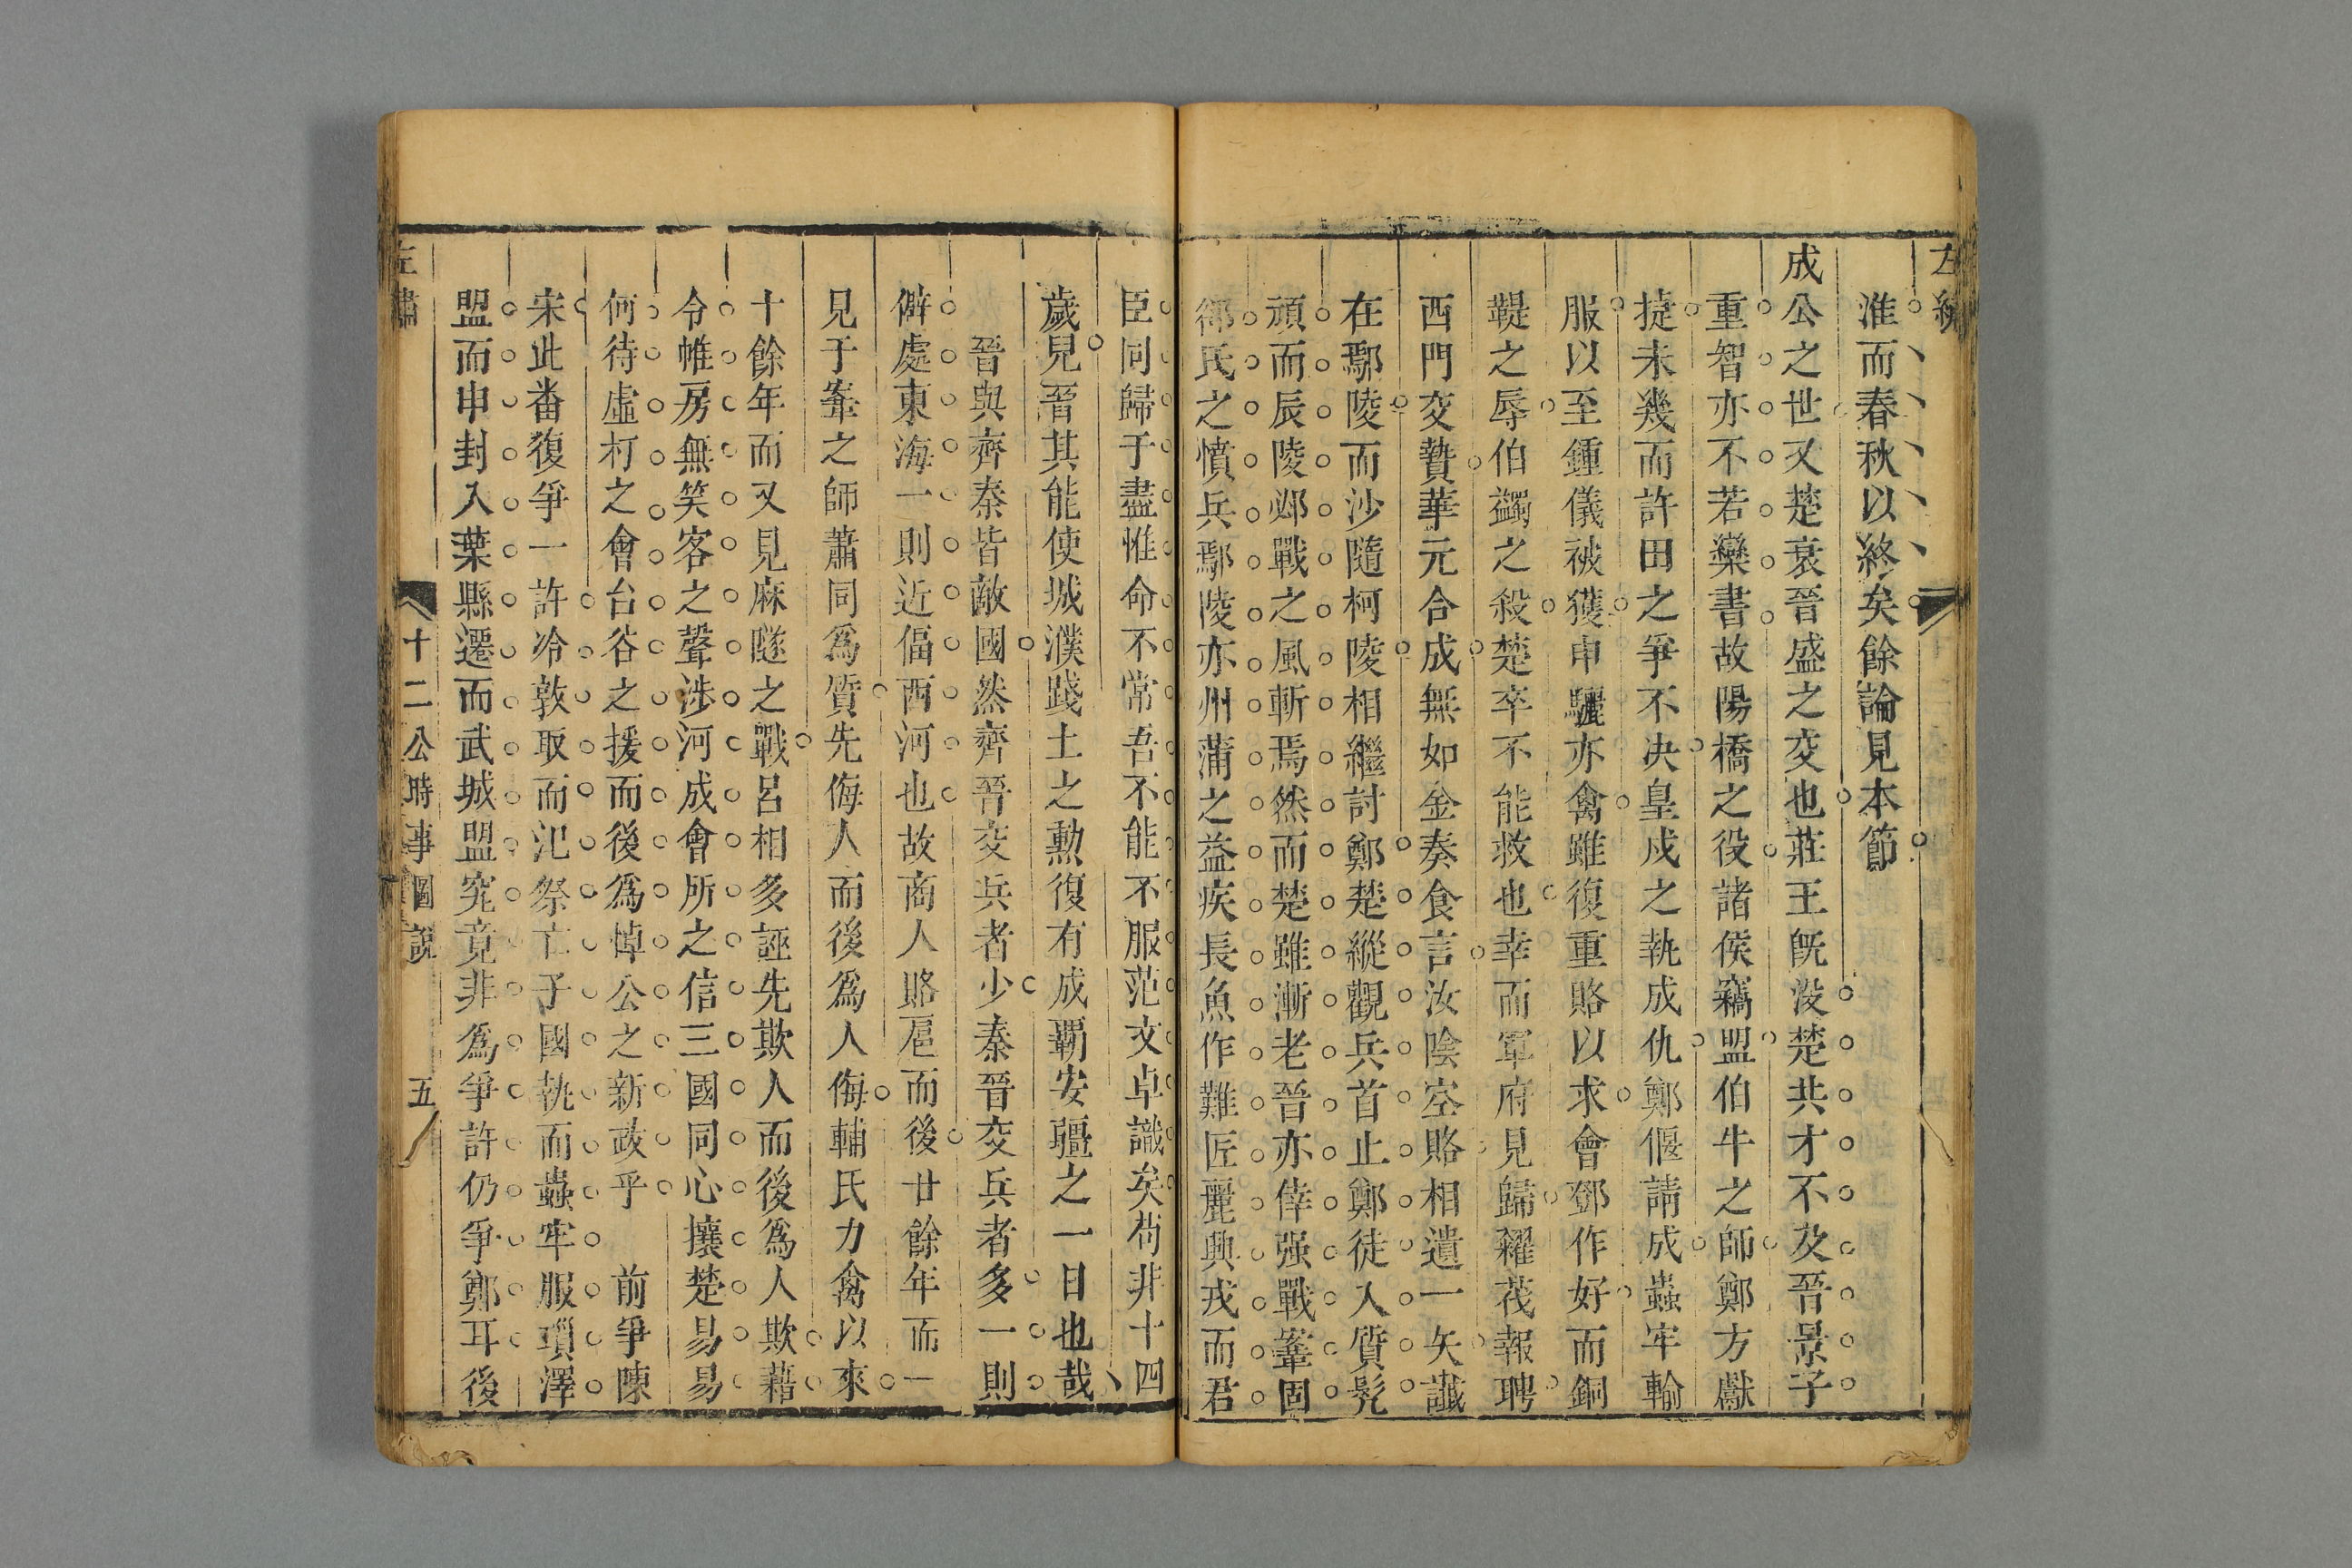 淮而春秋以終矣餘論見本節
成公之世又楚衰晉盛之交也莊王既沒楚共才不及晉景子
重智亦不若欒書故陽橋之役諸侯竊盟伯牛之師鄭方獻
捷未幾而許田之爭不决皇戍之執成仇鄭偃請成蟲牢輸
服以至鍾儀被獲申驪亦禽雖復重賂以求會鄧作好而銅
鞮之辱伯蠲之殺楚卒不能救也幸而軍府見歸糴茷報聘
西門交贄華元合成無如金奏食言汝陰空賂相遺一矢讖
在鄢陵而沙隨柯陵相繼討鄭楚縱觀兵首止鄭徒入質髡
頑而辰陵邲戰之風斬焉然而楚雖漸老晉亦倖强戰鞌固
郤氏之憤兵鄢陵亦州蒲之益疾長魚作難匠麗興戎而君
臣同歸于盡惟命不常吾不能不服范文卓識矣茍非十四
歲兒晉其能使城濮踐土之勲復有成覇安疆之一日也哉
晉與齊秦皆敵國然齊晉交兵者少秦晉交兵者多一則
僻處東海一則近偪西河也故商人賂扈而後廿餘年而一
見于鞌之師蕭同爲質先侮人而後爲人侮輔氏力禽以來
十餘年而又見麻隧之戰呂相多誣先欺人而後爲人欺藉
令帷房無笑客之聲涉河成會所之信三國同心攘楚易易
何待虛朾之會台谷之援而後爲悼公之新政乎 前爭陳
宋此番復爭一許冷敦取而氾祭亡子國執而蟲牢服瑣澤
盟而申封入葉縣遷而武城盟究竟非爲爭許仍爭鄭耳後
左繡
十二公時事圖說
五